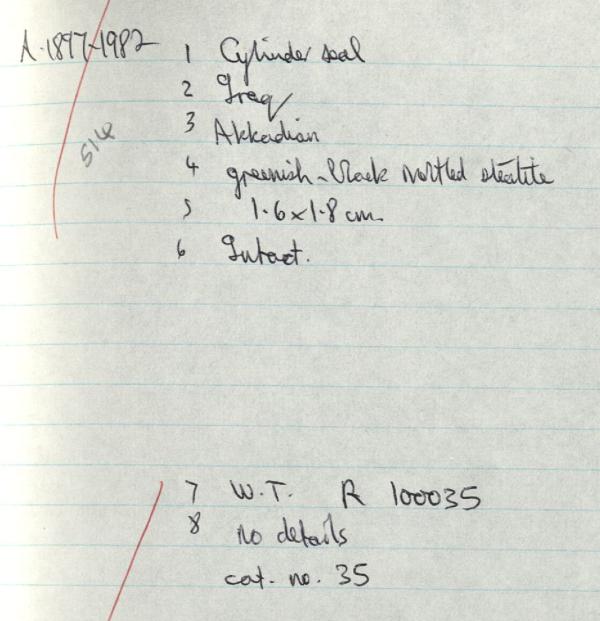 A.1897-1982 1 Cylinder seal
2 Iraq
3 Akkadian
514
4 greenish-black mottled steatite
5 1.6 x 1.8 cm.
6 Intact.
7 W.T. R 100035
8 no details
cat. no. 35